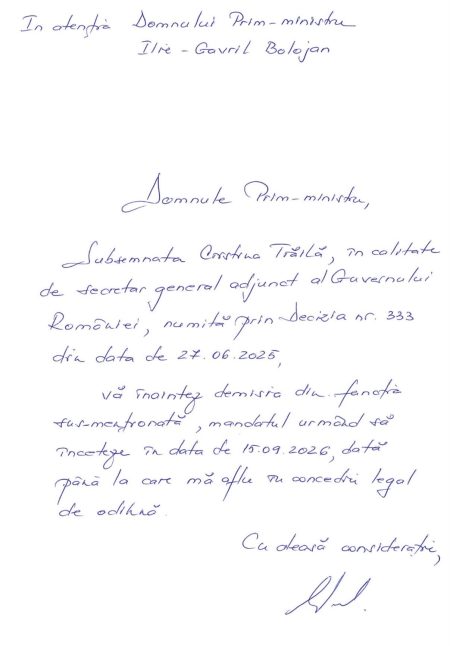 In atenția Domnului Prim-ministru
Ilie - Gavril Bolojan
Domnule Prim-ministru,
Subsemnata Cristina Trăilă, în calitate
de secretar general adjunct al Guvernului
României, numită prin Decizia nr. 333
din data de 27.06.2025,
vă înaintez demisia din funcția
sus-menționată, mandatul urmând să
înceteze în data de 15.09.2026, dată
până la care mă aflu în concediu legal
de odihnă.
Cu aleasă considerație,